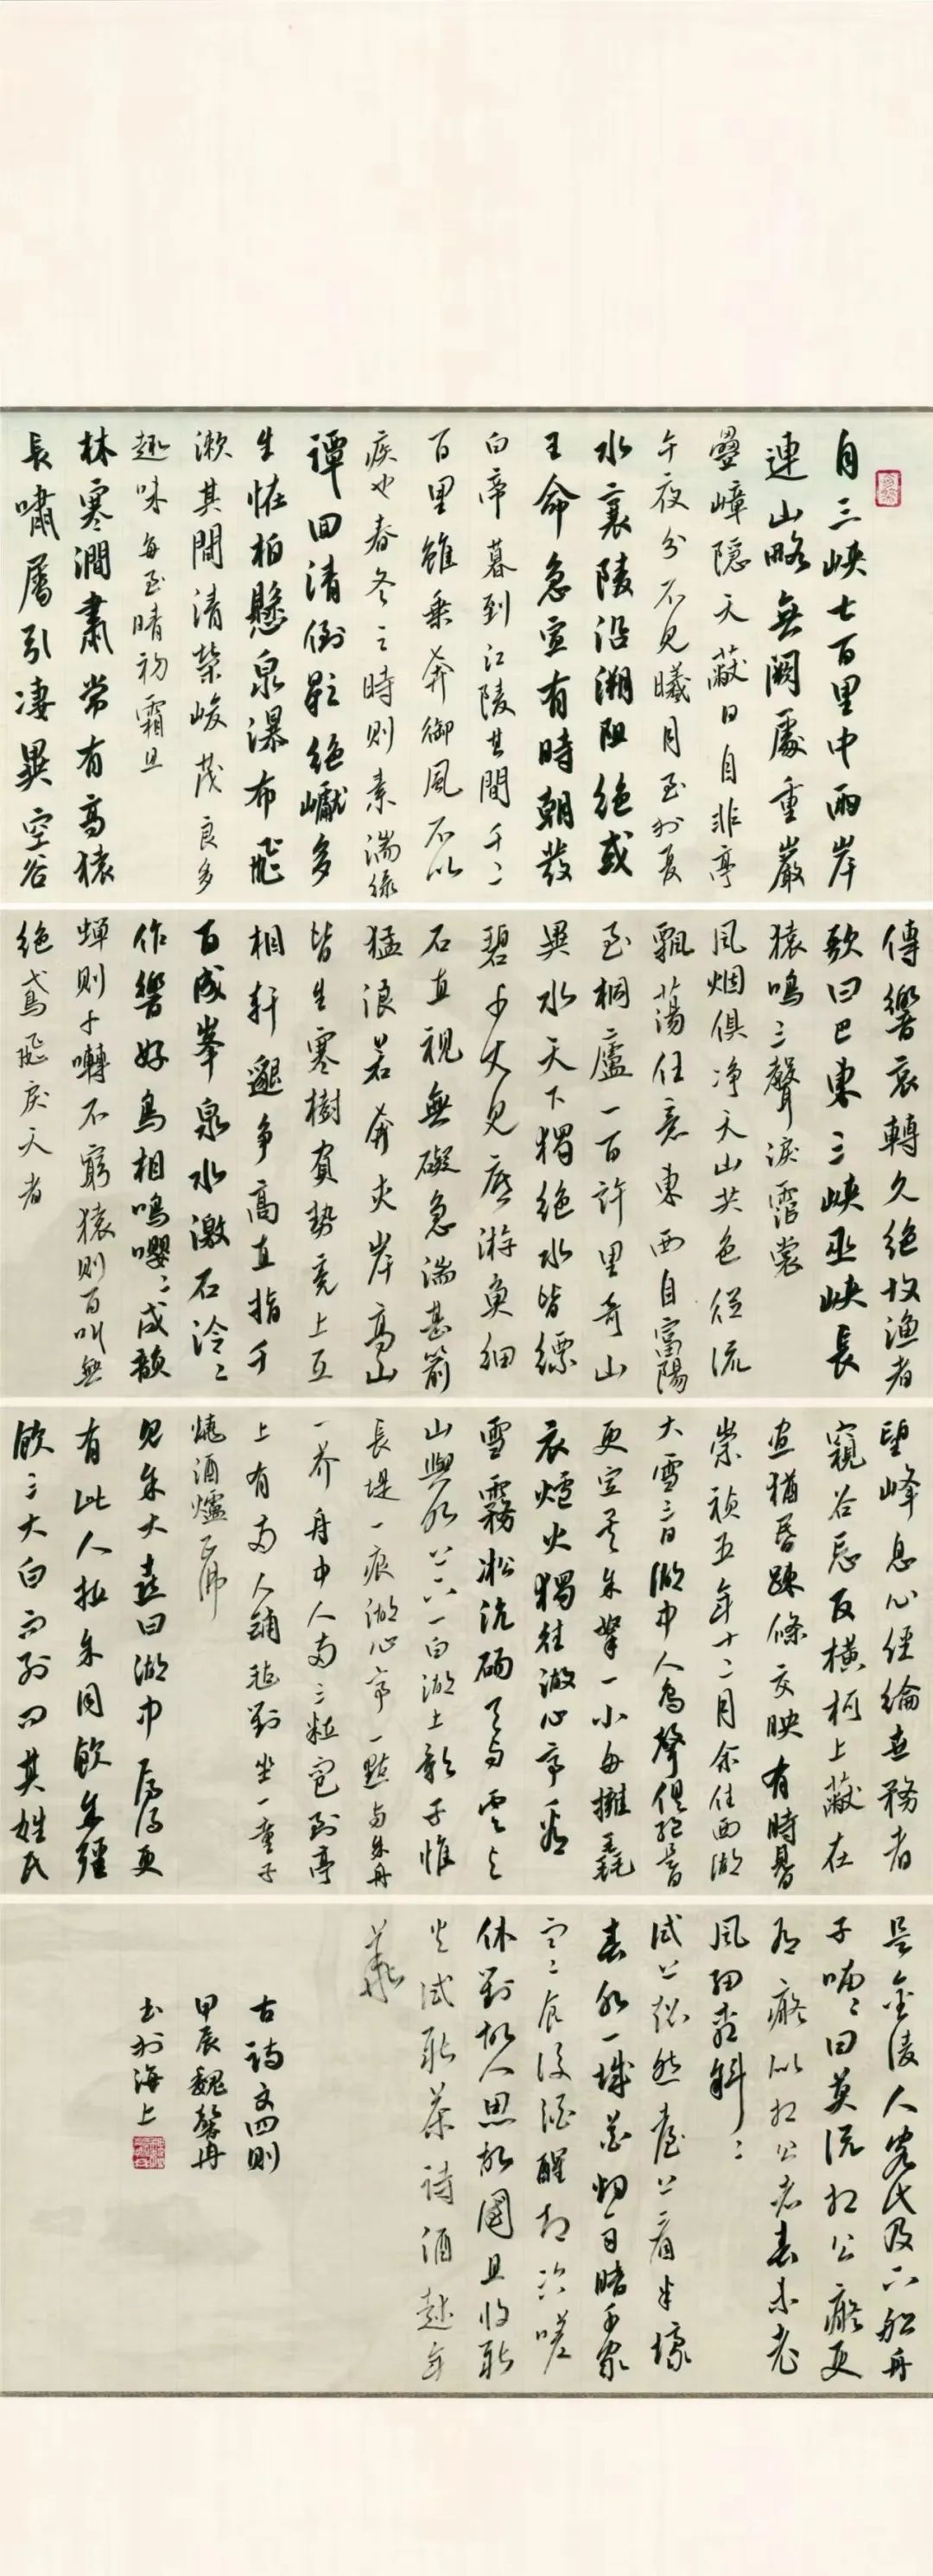 自三峽七百里中兩岸
連山略無闕處重巖
疊嶂隱天蔽日自非亭
午夜分不見曦月至於夏
水襄陵沿溯阻絕或
王命急宣有時朝發
白帝暮到江陵其間千二
百里雖乘奔御風不以
疾也春冬之時則素湍綠
潭回清倒影絕巘多
生怪柏懸泉瀑布飛
漱其間清榮峻茂良多
趣味每至晴初霜旦
林寒澗肅常有高猿
長嘯屬引凄異空谷
傳響哀轉久絕故漁者
歌曰巴東三峽巫峽長
猿鳴三聲淚霑裳
風烟俱净天山共色從流
飄蕩任意東西自富陽
至桐廬一百許里奇山
異水天下獨絕水皆縹
碧千丈見底游魚細
石直視無礙急湍甚箭
猛浪若奔夾岸高山
皆生寒樹負勢競上互
相軒邈爭高直指千
百成峯泉水激石泠〻
作響好鳥相鳴嚶〻成韻
蟬則千囀不窮猿則百叫無
絕鳶飛戾天者
望峰息心經綸世務者
窺谷忘反橫柯上蔽在
晝猶昏疎條交映有時見日
崇禎五年十二月余住西湖
大雪三日湖中人鳥聲俱絕是日
更定矣余拏一小舟擁毳
衣爐火獨往湖心亭看
雪霧凇沆碭天與雲與
山與水上下一白湖上影子惟
長堤一痕湖心亭一點與余舟
一芥舟中人兩三粒而已到亭
上有兩人鋪氈對坐一童子
燒酒爐正沸
見余大喜曰湖中焉得更
有此人拉余同飲余强
飲三大白而別問其姓氏
是金陵人客此及下船舟
子喃〻曰莫說相公癡更
有癡似相公者春未老
風細柳斜〻
試上超然臺上看半壕
春水一城花烟雨暗千家
寒食後酒醒却咨嗟
休對故人思故國且將新
火試新茶詩酒趁年
華
古詩文四則
甲辰魏馨冉
書於海上